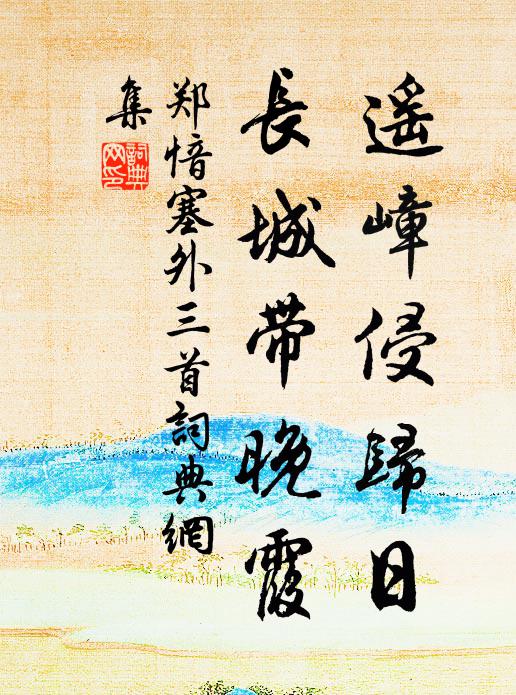 遥嶂侵歸日
長城带晚霞
郑愔塞外三首詞典網
集
詞典網印